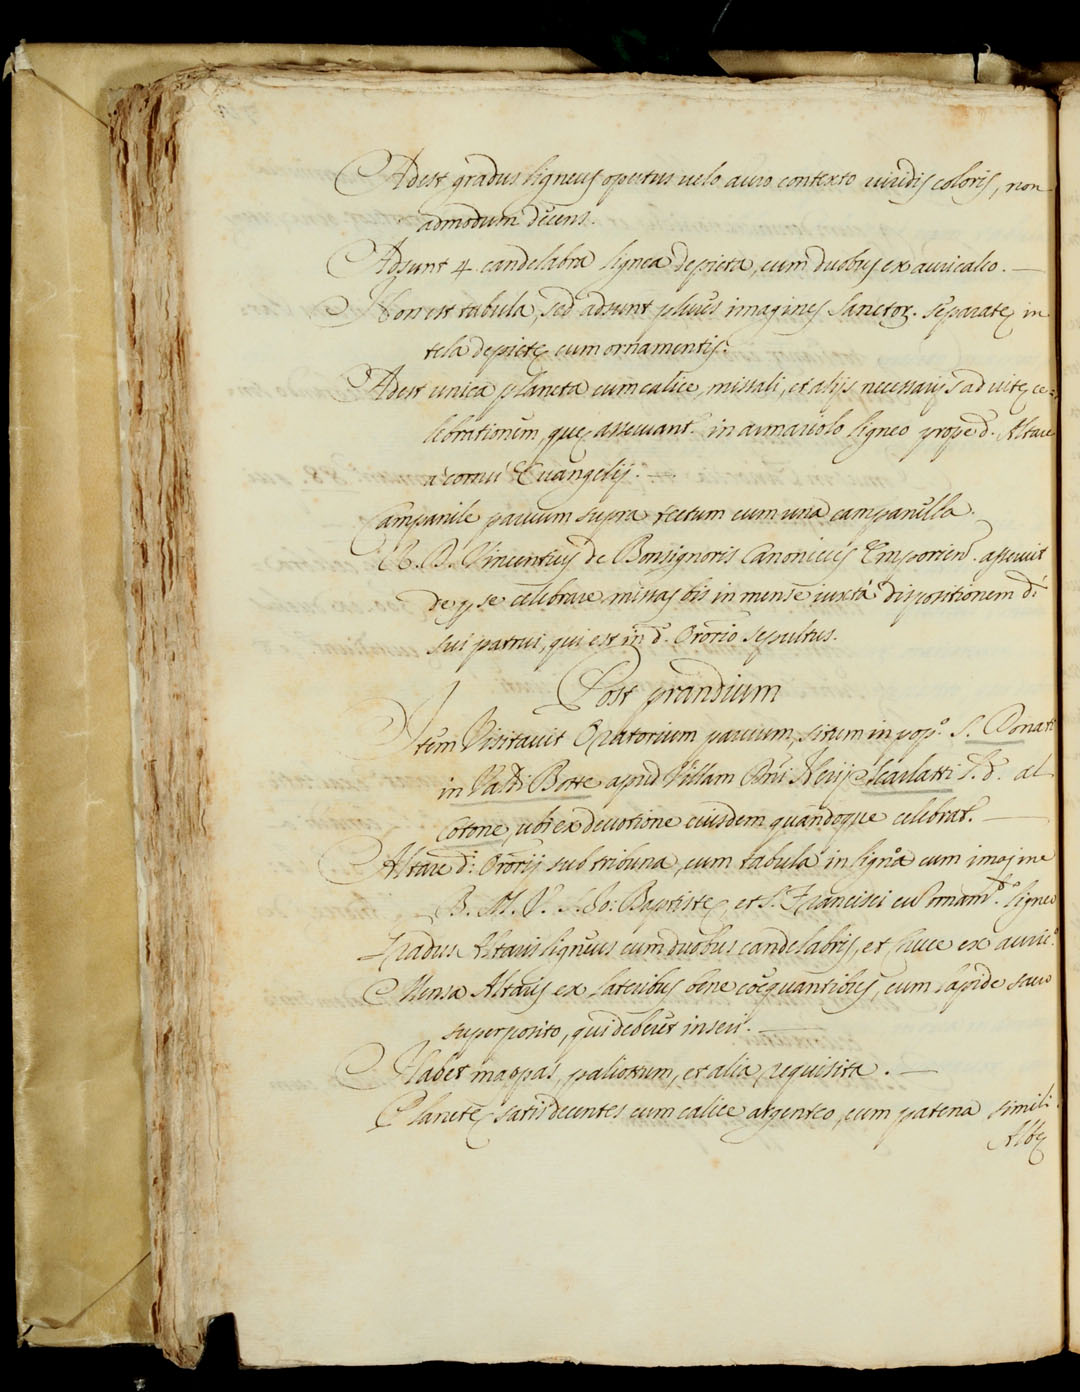 Adest gradus ligneus opertus uelo auro contexto uiridis coloris, non
admodum decens.
Adsunt 4 candelabra lignea depicta, cum duobus ex auricalco.
Non est tabula, sed adsunt plures imagines Sanctor. separatę in
tela depictę cum ornamentis.
Adest unica planeta cum calice, missali, et alijs necessarijs ad ritę ce=
lebrationem, quę asseruant. in armariolo ligneo prope d. Altare
à cornu Euangelij.
Campanile paruum supra tectum cum una campanulla.
R. D. Vincentius de Bonsignoris Canonicus Emporien. asseruit
de p se celebrare missas bis in mense iuxta dispositionem d.
sui patrui, qui est in d. Ororio sepultus.
Post prandium
Item Visitauit Oratorium paruum, situm in pop.o S. Donati
in Val di Botte apud Villam Dni Nerij Scarlatti l. d. al
Cotone, ubi ex deuotione eiusdem quandoque celebrat.
Altare d. Ororij sub tribuna, cum tabula in lignea cum imagine
B. M. V. S. Jo: Baptistę, et S. Francisci cu ornam.o d.o ligneo
Gradus Altaris ligneus cum duobus candelabris, et cruce ex auric.o
Mensa Altaris ex lateribus bene coequantibus, cum lapide sacro
superposito, qui deberet inseri.
Habet mappas, paliottum, et alia requisita.
Planetę satis decentes cum calice argenteo, cum patena simili.
Albę